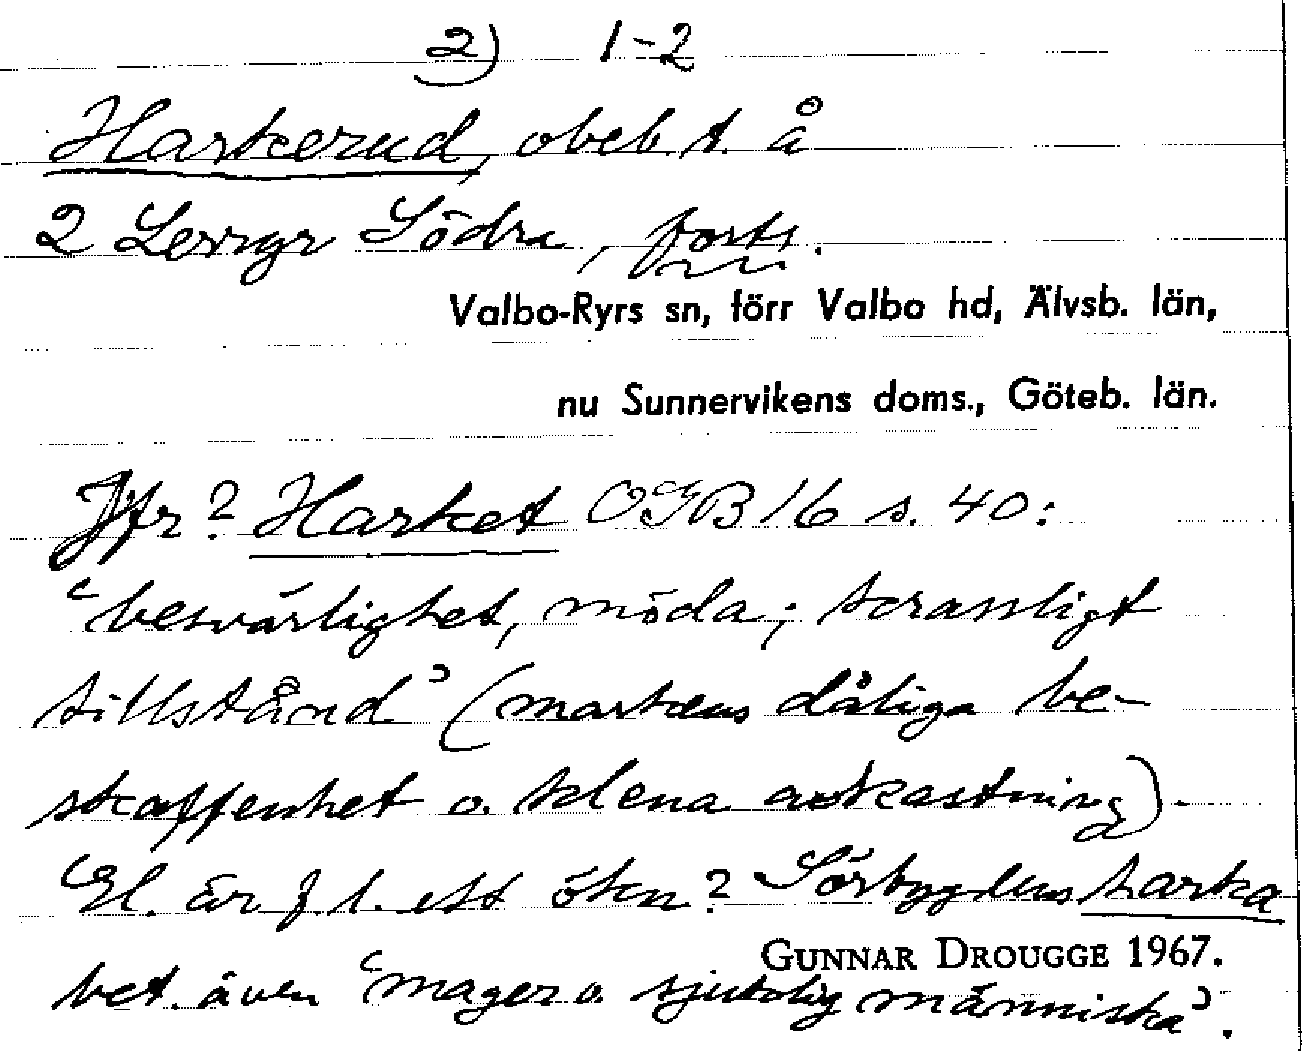 2) 1-2
Harkerud, obeb. t. å
2 Lerryr Södra, forts.
Valbo-Ryrs sn, förr Valbo hd, Älvsb. län,
nu Sunnervikens doms., Göteb. län.
Jfr? Harket OGB 16 s. 40:
"besvärlighet, möda; krassligt
tillstånd" (markens dåliga be-
skaffenhet o. klena avkastning).
El. är f. l. ett ökn? Sörbygdens harka
GUNNAR DROUGGE 1967.
bet. även "mager o. sjuklig människa".